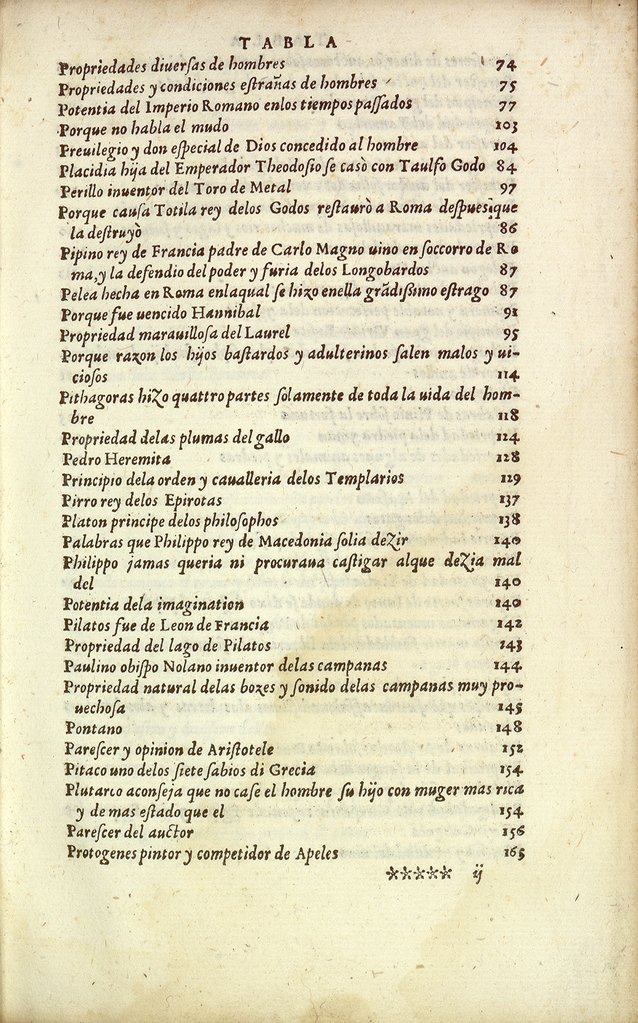 TABLA
Propriedades diuerſas de hombres 74
Propriedades y condiciones eſtrañas de hombres 75
Potentia del Imperio Romano enlos tiempos paſſados 77
Porque no habla el mudo 103
Preuilegio y don eſpecial de Dios concedido al hombre 104
Placidia hija del Emperador Theodoſio ſe casò con Taulfo Godo 84
Perillo inuentor del Toro de Metal 97
Porque cauſa Totila rey delos Godos reſtaurò a Roma deſpues que
la deſtruyò 86
Pipino rey de Francia padre de Carlo Magno uino en ſoccorro de Ro
ma, y la defendio del poder y furia delos Longobardos 87
Pelea hecha en Roma enlaqual ſe hizo enella grãdiſsimo eſtrago 87
Porque fue uencido Hannibal 91
Propriedad marauilloſa del Laurel 95
Porque razon los hijos baſtardos y adulterinos ſalen malos y ui-
cioſos 114
Pithagoras hizo quattro partes ſolamente de toda la uida del hom-
bre 118
Propriedad delas plumas del gallo 124
Pedro Heremita 128
Principio dela orden y caualleria delos Templarios 129
Pirro rey delos Epirotas 137
Platon principe delos philoſophos 138
Palabras que Philippo rey de Macedonia ſolia dezir 140
Philippo jamas queria ni procuraua caſtigar alque dezia mal
del 140
Potentia dela imagination 140
Pilatos fue de Leon de Francia 142
Propriedad del lago de Pilatos 143
Paulino obiſpo Nolano inuentor delas campanas 144
Propriedad natural delas bozes y ſonido delas campanas muy pro-
uechoſa 145
Pontano 148
Pareſcer y opinion de Ariſtotele 152
Pitaco uno delos ſiete ſabios di Grecia 154
Plutarco aconſeja que no caſe el hombre ſu hijo con muger mas rica
y de mas eſtado que el 154
Pareſcer del auctor 156
Protogenes pintor y competidor de Apeles 165
***** ij